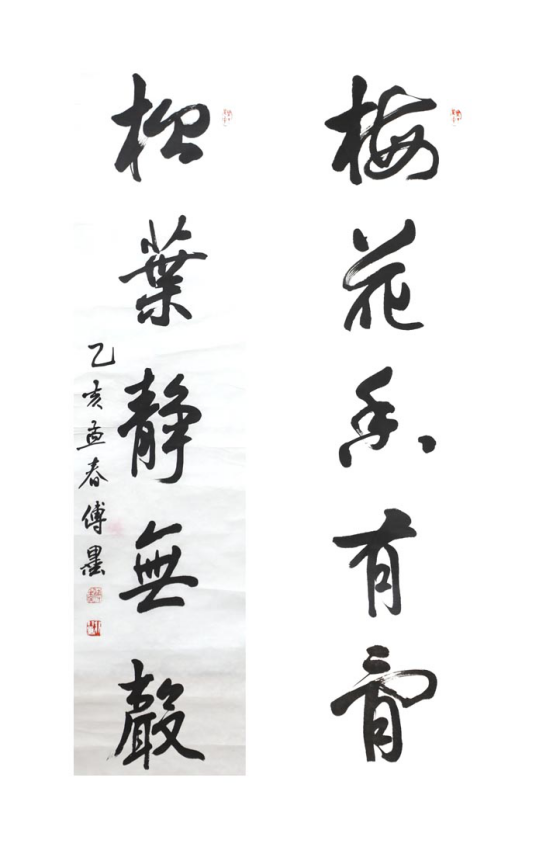 梅花香有骨
柳葉静無聲
乙亥孟春傅墨